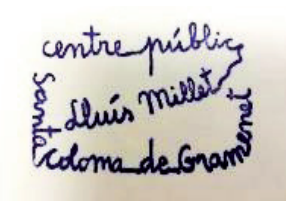 centre públic
Lluís Millet
Santa
Coloma de Gramenet